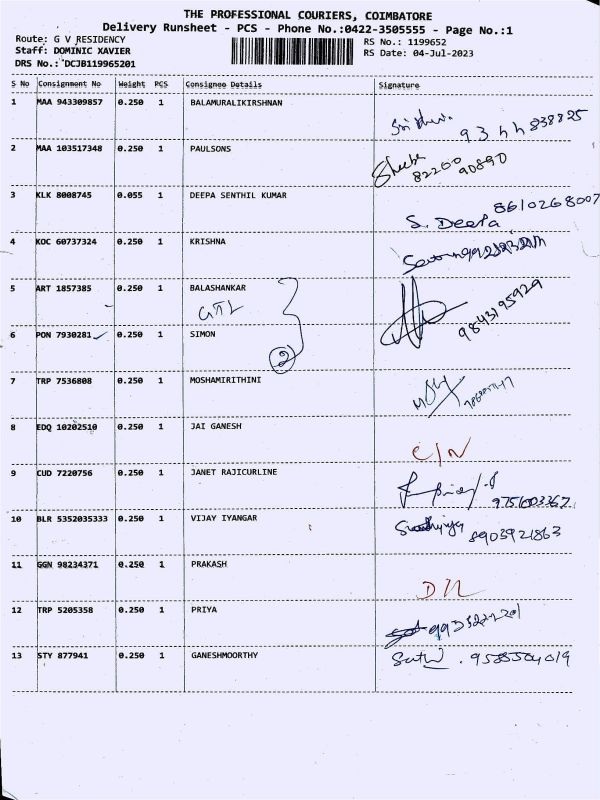 THE PROFESSIONAL COURIERS, COIMBATORE
Delivery Runsheet - PCS - Phone No.:0422-3505555 - Page No.:1
Route: G V RESIDENCY
RS No.: 1199652
Staff: DOMINIC XAVIER
RS Date: 04-Jul-2023
DRS No.: DCJB119965201
S No Consignment No Weight PCS Consignee Details Signature
1 MAA 943309857 0.250 1 BALAMURALIKIRSHNAN
2 MAA 103517348 0.250 1 PAULSONS
Sheeba
82200
90890
3 KLK 8008745 0.055 1 DEEPA SENTHIL KUMAR
8610268007
S. Deepa
4 KOC 60737324 0.250 1 KRISHNA
5 ART 1857385 0.250 1 BALASHANKAR
9843195929
6 PON 7930281 0.250 1 SIMON
2
7 TRP 7536808 0.250 1 MOSHAMIRITHINI
8 EDQ 10202510 0.250 1 JAI GANESH
C/N
9 CUD 7220756 0.250 1 JANET RAJICURLINE
9751003367
10 BLR 5352035333 0.250 1 VIJAY IYANGAR
8903921863
11 GGN 98234371 0.250 1 PRAKASH
12 TRP 5205358 0.250 1 PRIYA
13 STY 877941 0.250 1 GANESHMOORTHY